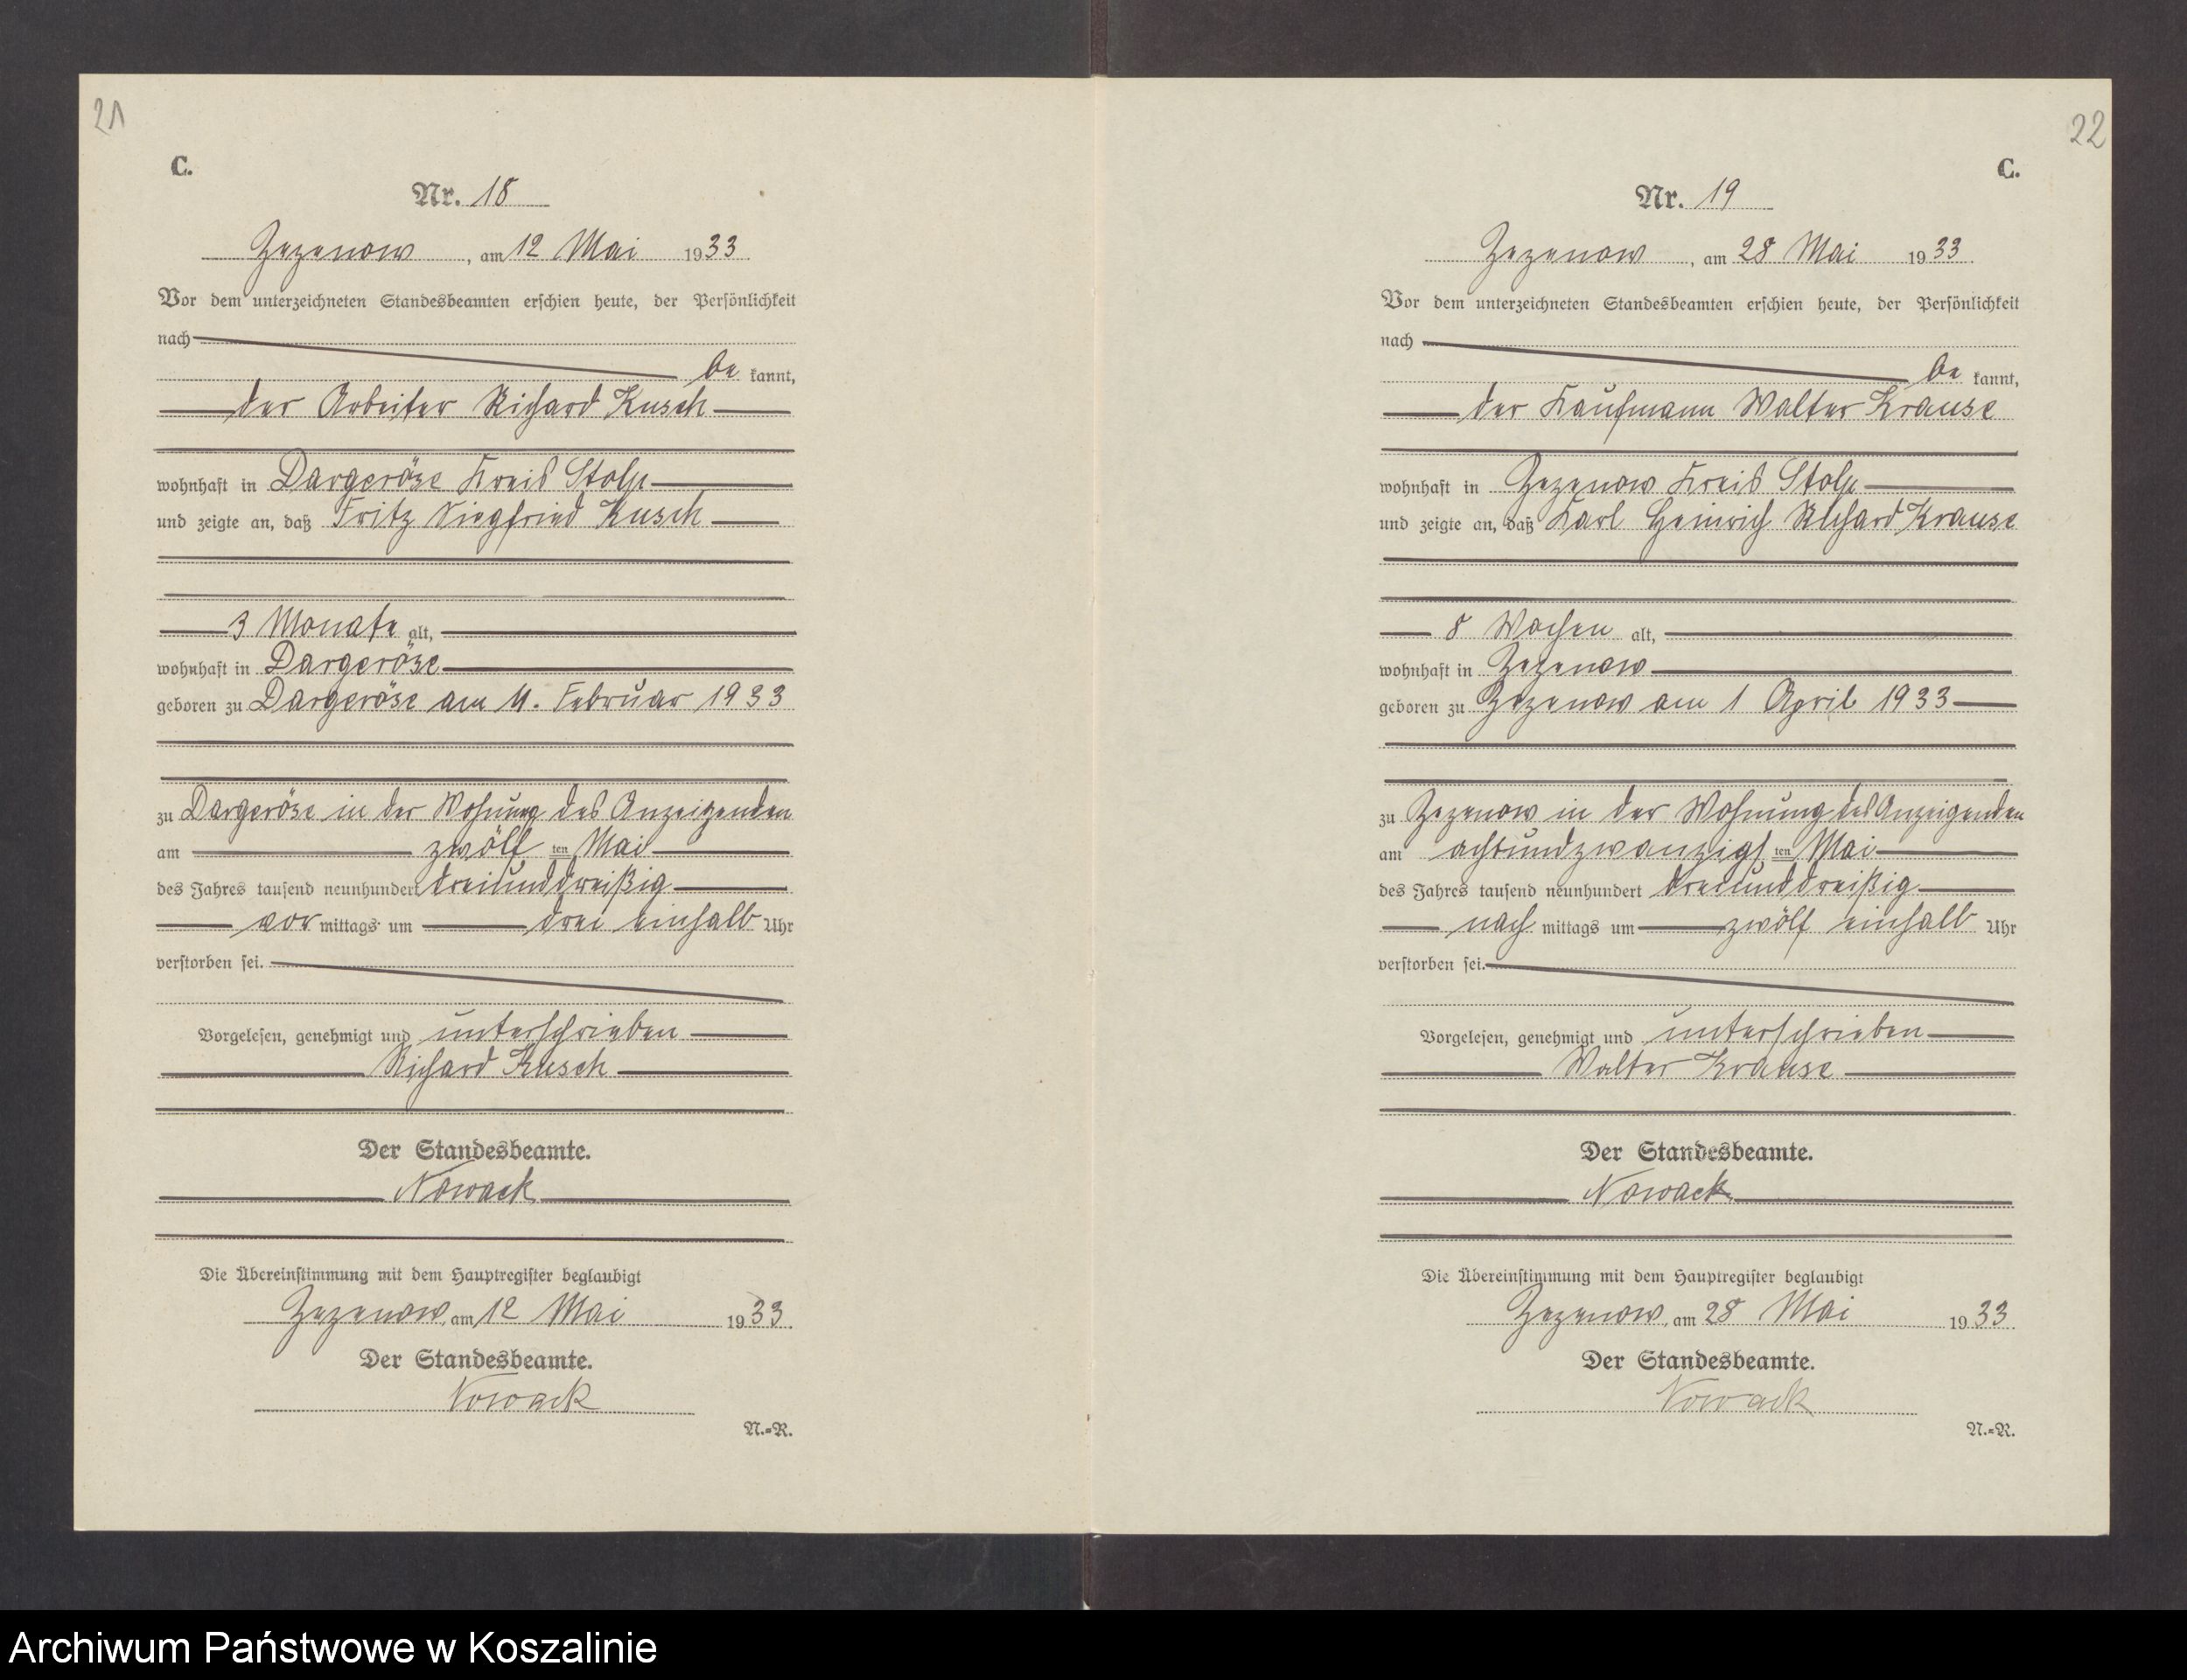 21
C.
Nr. 18
Zezenow, am 12 Mai 1933
Vor dem unterzeichneten Standesbeamten erschien heute, der Persönlichkeit
nach
be kannt,
der Arbeiter Richard Kusch
wohnhaft in Dargeröse Kreis Stolp
und zeigte an, daß Fritz Siegfried Kusch
3 Monate alt,
wohnhaft in Dargeröse
geboren zu Dargeröse am 4. Februar 1933
zu Dargeröse in der Wohnung des Anzeigenden
am zwölf ten Mai
des Jahres tausend neunhundert dreiunddreißig
vor mittags um drei einhalb Uhr
verstorben sei.
Vorgelesen, genehmigt und unterschrieben
Richard Kusch
Der Standesbeamte.
Nowack
Die Übereinstimmung mit dem Hauptregister beglaubigt
Zezenow, am 12 Mai 1933.
Der Standesbeamte.
Nowack
N.=R.
22
C.
Nr. 19
Zezenow, am 28 Mai 1933.
Vor dem unterzeichneten Standesbeamten erschien heute, der Persönlichkeit
nach
be kannt,
der Kaufmann Walter Krause
wohnhaft in Zezenow Kreis Stolp
und zeigte an, daß Karl Heinrich Richard Krause
8 Wochen alt,
wohnhaft in Zezenow
geboren zu Zezenow am 1 April 1933
zu Zezenow in der Wohnung des Anzeigenden
am achtundzwanzigs ten Mai
des Jahres tausend neunhundert dreiunddreißig
nach mittags um zwölf einhalb Uhr
verstorben sei.
Vorgelesen, genehmigt und unterschrieben
Walter Krause
Der Standesbeamte.
Nowack
Die Übereinstimmung mit dem Hauptregister beglaubigt
Zezenow, am 28 Mai 1933.
Der Standesbeamte.
Nowack
N.=R.
Archiwum Państwowe w Koszalinie